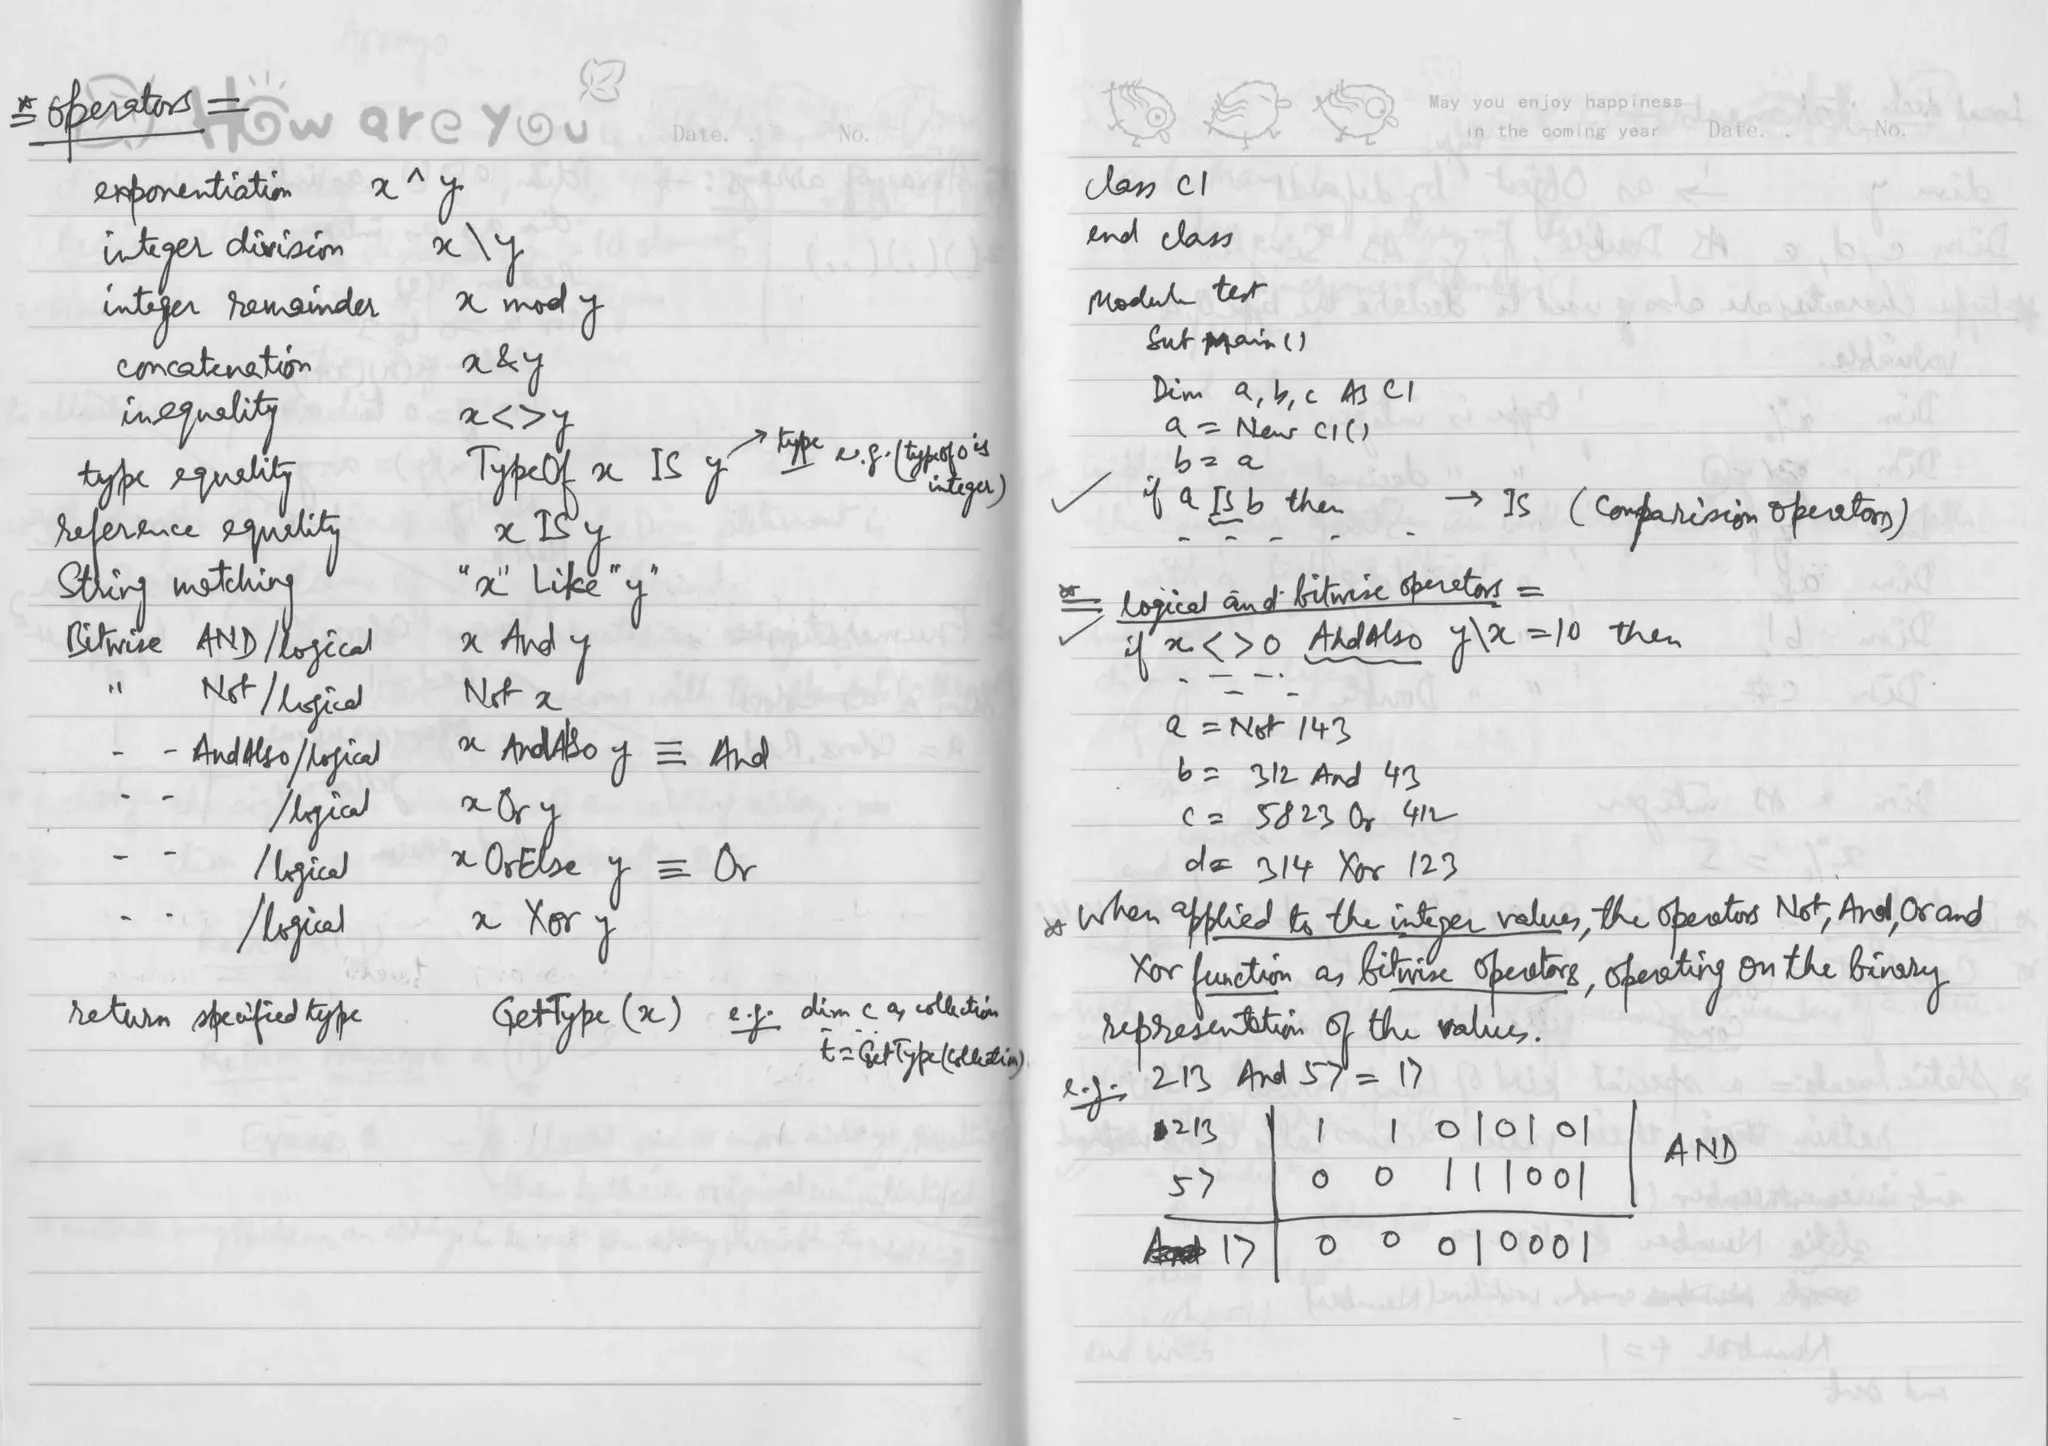 * Operators =
How are you
Date. . No.
exponentiation x ^ y
integer division x \ y
integer remainder x mod y
concatenation x & y
inequality x <> y
type equality TypeOf x IS y → type e.g. (typeof o is integer)
reference equality x IS y
String matching "x" Like "y"
Bitwise AND/logical x And y
" Not/logical Not x
- - AndAlso/logical x AndAlso y ≡ And
- - /logical x Or y
- - /logical x OrElse y ≡ Or
- - /logical x Xor y
return specified type GetType (x) e.g. dim c as collection
t = GetType(Collection)
May you enjoy happiness
in the coming year Date. . No.
class C1
end class
Module test
Sub Main()
Dim a, b, c As C1
a = New C1()
b = a
✓ if a Is b then → IS (Comparision Operators)
- - - - -
* logical and bitwise operators =
✓ if x <> 0 AndAlso y\x = 10 then
- - - -
a = Not 143
b = 312 And 43
c = 5823 Or 412
d = 314 Xor 123
* When applied to the integer values, the operators Not, And, Or and
Xor function as bitwise operators, operating on the binary
representation of the values.
e.g. 213 And 57 = 17
213 | 1 1 0 1 0 1 0 1 | AND
57 | 0 0 1 1 1 0 0 1 |
17 | 0 0 0 1 0 0 0 1